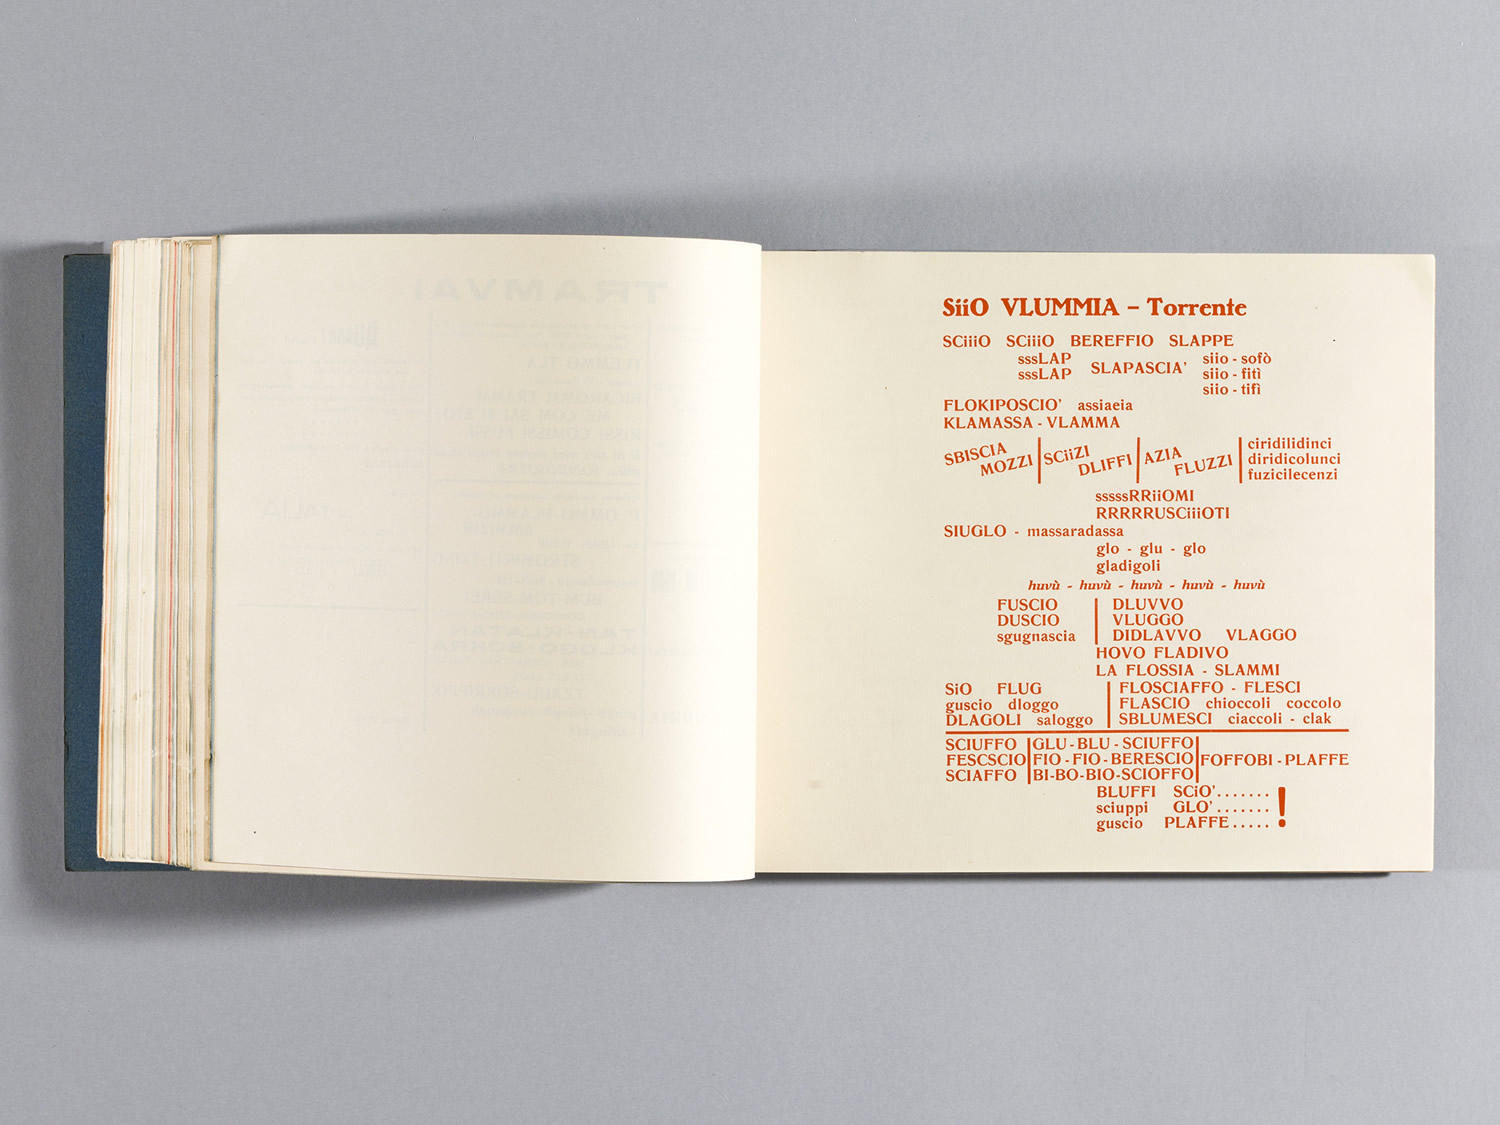 TRAMVAI
SiiO VLUMMIA – Torrente
SCiiiO SCiiiO BEREFFIO SLAPPE
sssLAP siio - sofò
sssLAP SLAPASCIA' siio - fitì
siio - tifì
FLOKIPOSCIO' assiaeia
KLAMASSA - VLAMMA
SBISCIA MOZZI | SCiiZI DLIFFI | AZIA FLUZZI | ciridilidinci
diridicolunci
fuzicilecenzi
sssssRRiiOMI
RRRRRUSCiiiOTI
SIUGLO - massaradassa
glo - glu - glo
gladigoli
huvù - huvù - huvù - huvù - huvù
FUSCIO | DLUVVO
DUSCIO | VLUGGO
sgugnascia | DIDLAVVO VLAGGO
HOVO FLADIVO
LA FLOSSIA - SLAMMI
SiO FLUG | FLOSCIAFFO - FLESCI
guscio dloggo | FLASCIO chioccoli coccolo
DLAGOLI saloggo | SBLUMESCI ciaccoli - clak
SCIUFFO | GLU - BLU - SCIUFFO |
FESCSCIO | FIO - FIO - BERESCIO | FOFFOBI - PLAFFE
SCIAFFO | BI - BO - BIO - SCIOFFO |
BLUFFI SCiO'.......
sciuppi GLO'....... !
guscio PLAFFE.....